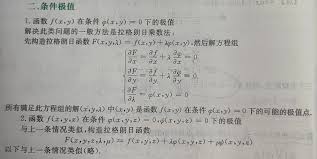 二、条件极值
1. 函数 f(x,y) 在条件 φ(x,y)=0 下的极值
解决此类问题的一般方法是拉格朗日乘数法:
先构造拉格朗日函数 F(x,y,λ)=f(x,y)+λφ(x,y),然后解方程组
∂F/∂x=∂f/∂x+λ∂φ/∂x=0
∂F/∂y=∂f/∂y+λ∂φ/∂y=0
∂F/∂λ=φ(x,y)=0
所有满足此方程组的解(x,y,λ)中(x,y)是函数 f(x,y) 在条件 φ(x,y)=0 下的可能的极值点.
2. 函数 f(x,y,z) 在条件 φ(x,y,z)=0,ψ(x,y,z)=0 下的极值
与上一条情况类似,构造拉格朗日函数
F(x,y,z,λ,μ)=f(x,y,z)+λφ(x,y,z)+μψ(x,y,z)
以下与上一条情况类似(略).